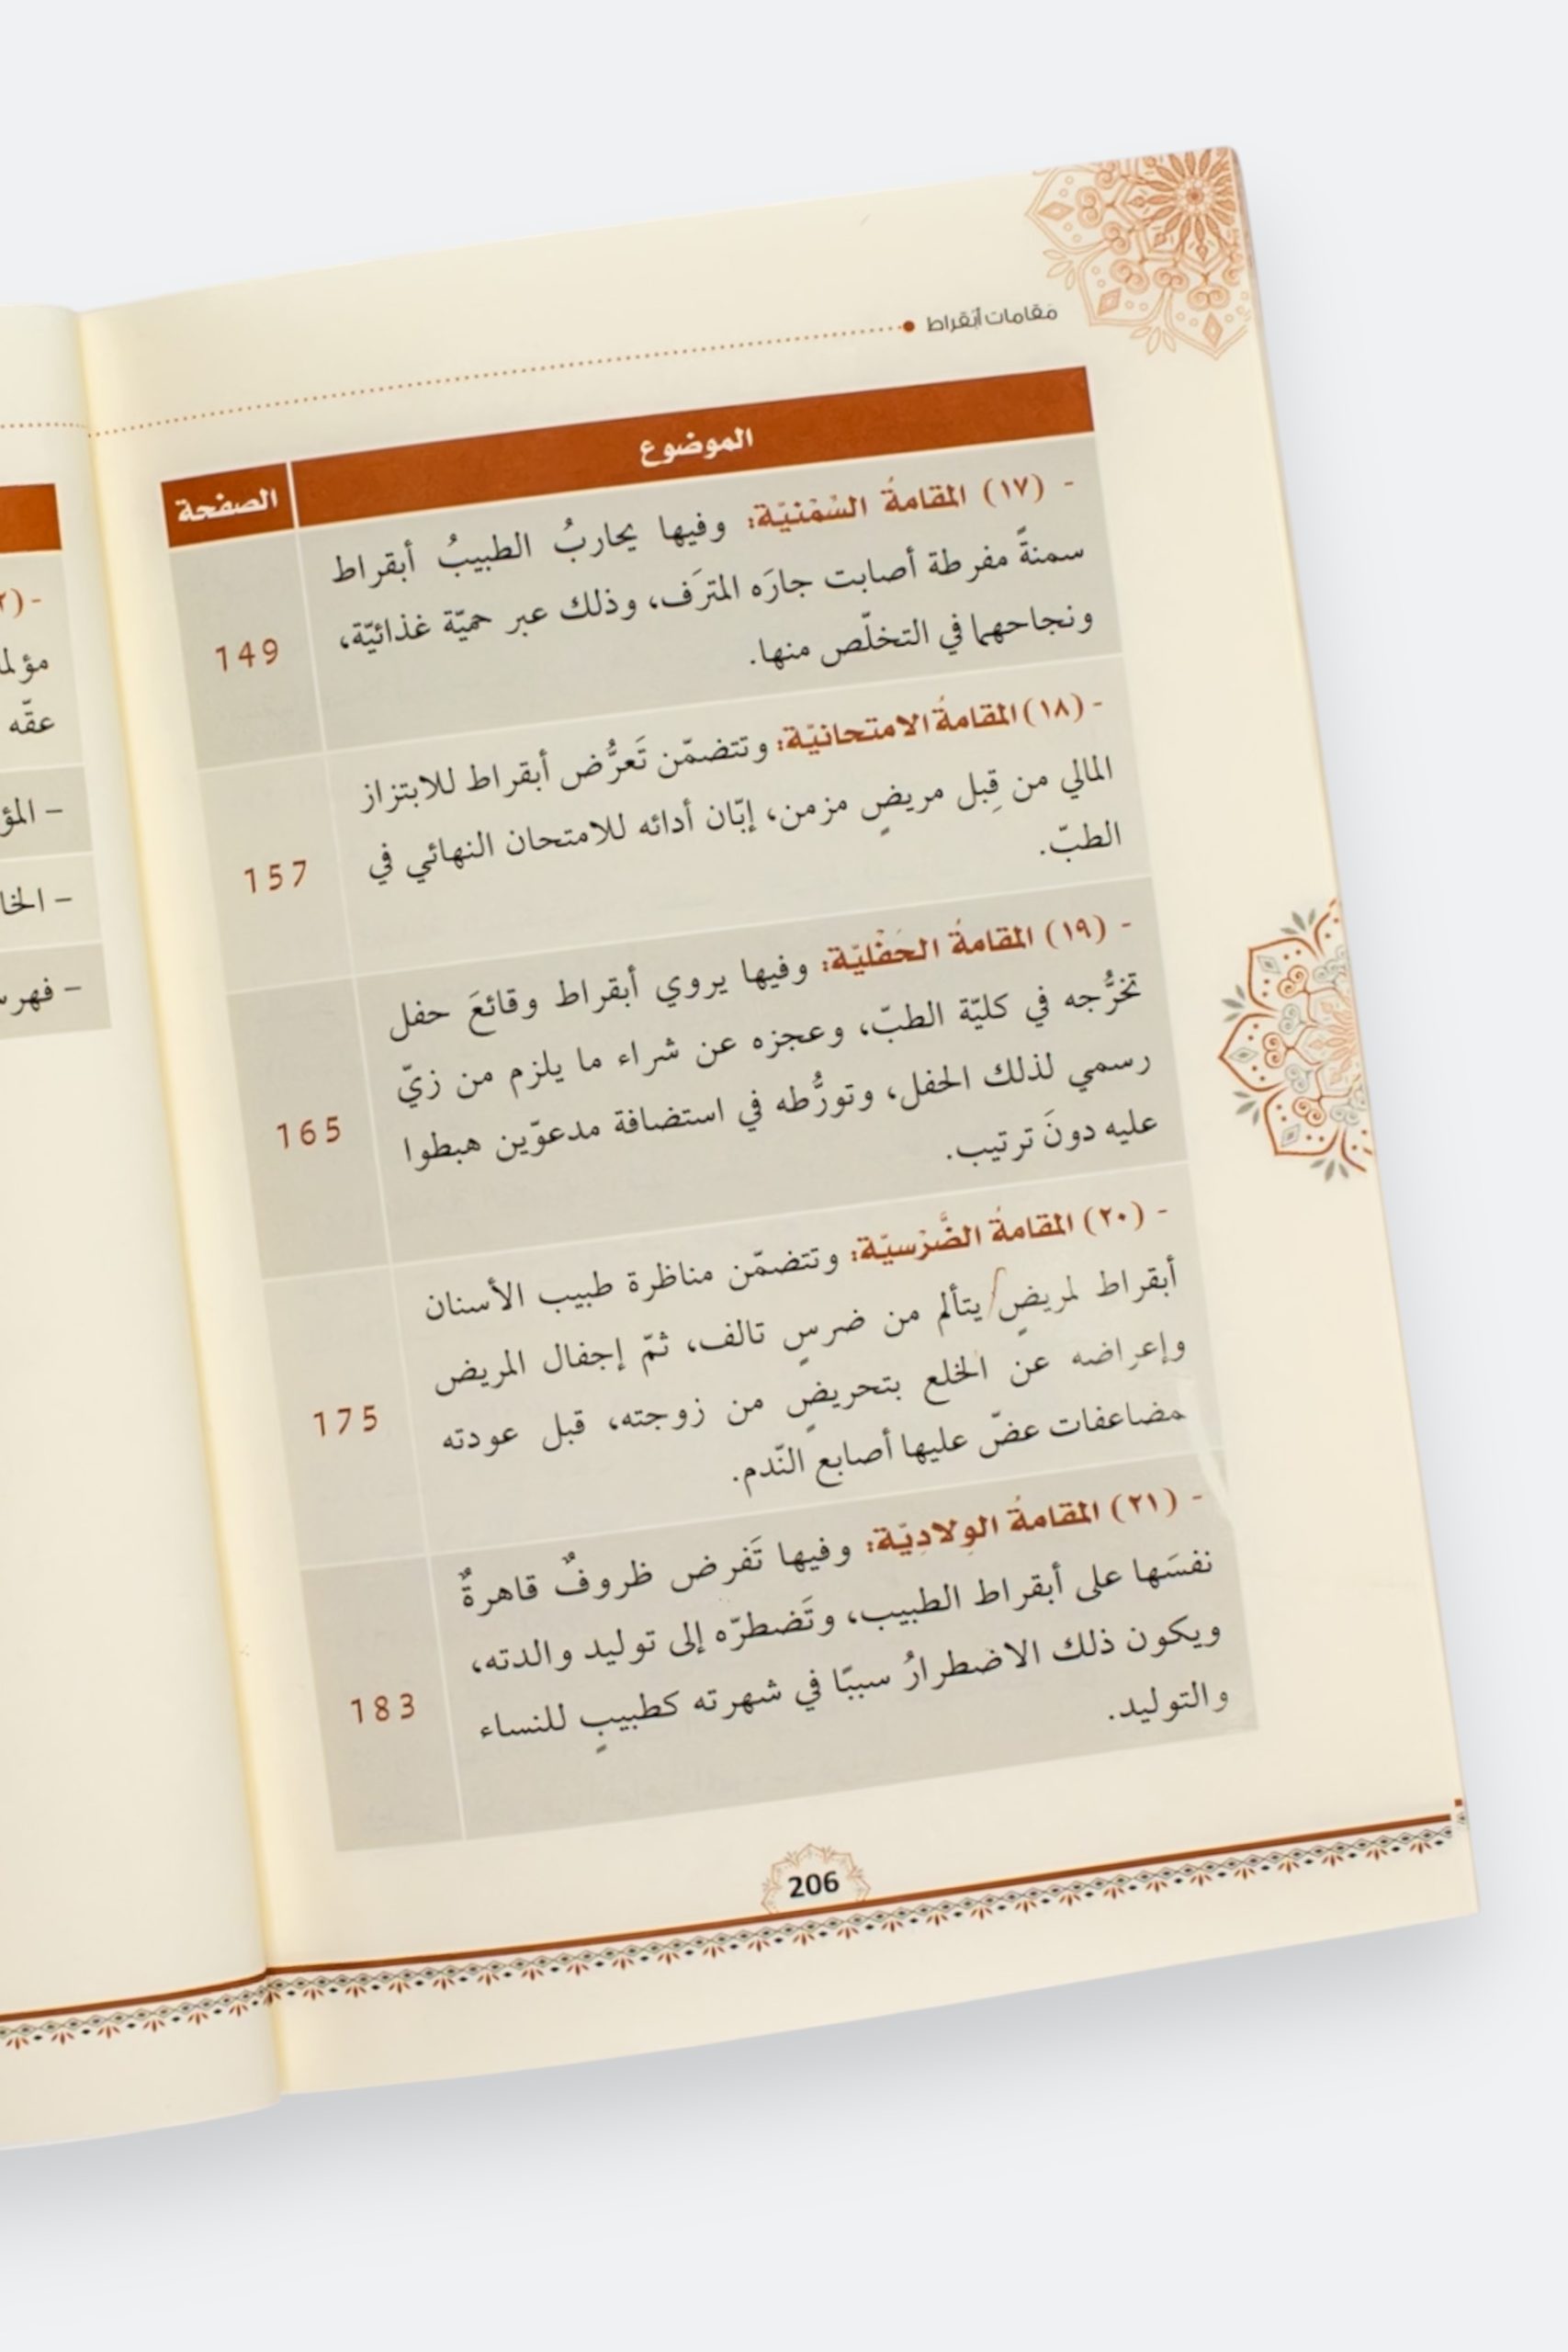 مَقامات أبُقراط
الموضوع
الصفحة
- (١٧) المقامةُ السُمْنيّة: وفيها يحاربُ الطبيبُ أبقراط
سمنةً مفرطة أصابت جارَه المترَف، وذلك عبر حميّة غذائيّة،
ونجاحهما في التخلّص منها.
149
- (١٨) المقامةُ الامتحانيّة: وتتضمّن تَعرُّض أبقراط للابتزاز
المالي من قِبل مريضٍ مزمن، إبّان أدائه للامتحان النهائي في
الطبّ.
157
- (١٩) المقامةُ الحَفْليّة: وفيها يروي أبقراط وقائعَ حفل
تخرُّجه في كليّة الطبّ، وعجزه عن شراء ما يلزم من زيّ
رسمي لذلك الحفل، وتورُّطه في استضافة مدعوّين هبطوا
عليه دونَ ترتيب.
165
- (٢٠) المقامةُ الضَّرْسيّة: وتتضمّن مناظرة طبيب الأسنان
أبقراط لمريضٍ يتألم من ضرسٍ تالف، ثمّ إجفال المريض
وإعراضه عن الخلع بتحريضٍ من زوجته، قبل عودته
بمضاعفات عضّ عليها أصابع النّدم.
175
- (٢١) المقامةُ الوِلادِيّة: وفيها تَفرض ظروفٌ قاهرةٌ
نفسَها على أبقراط الطبيب، وتَضطرّه إلى توليد والدته،
ويكون ذلك الاضطرارُ سببًا في شهرته كطبيبٍ للنساء
والتوليد.
183
206
عقّه